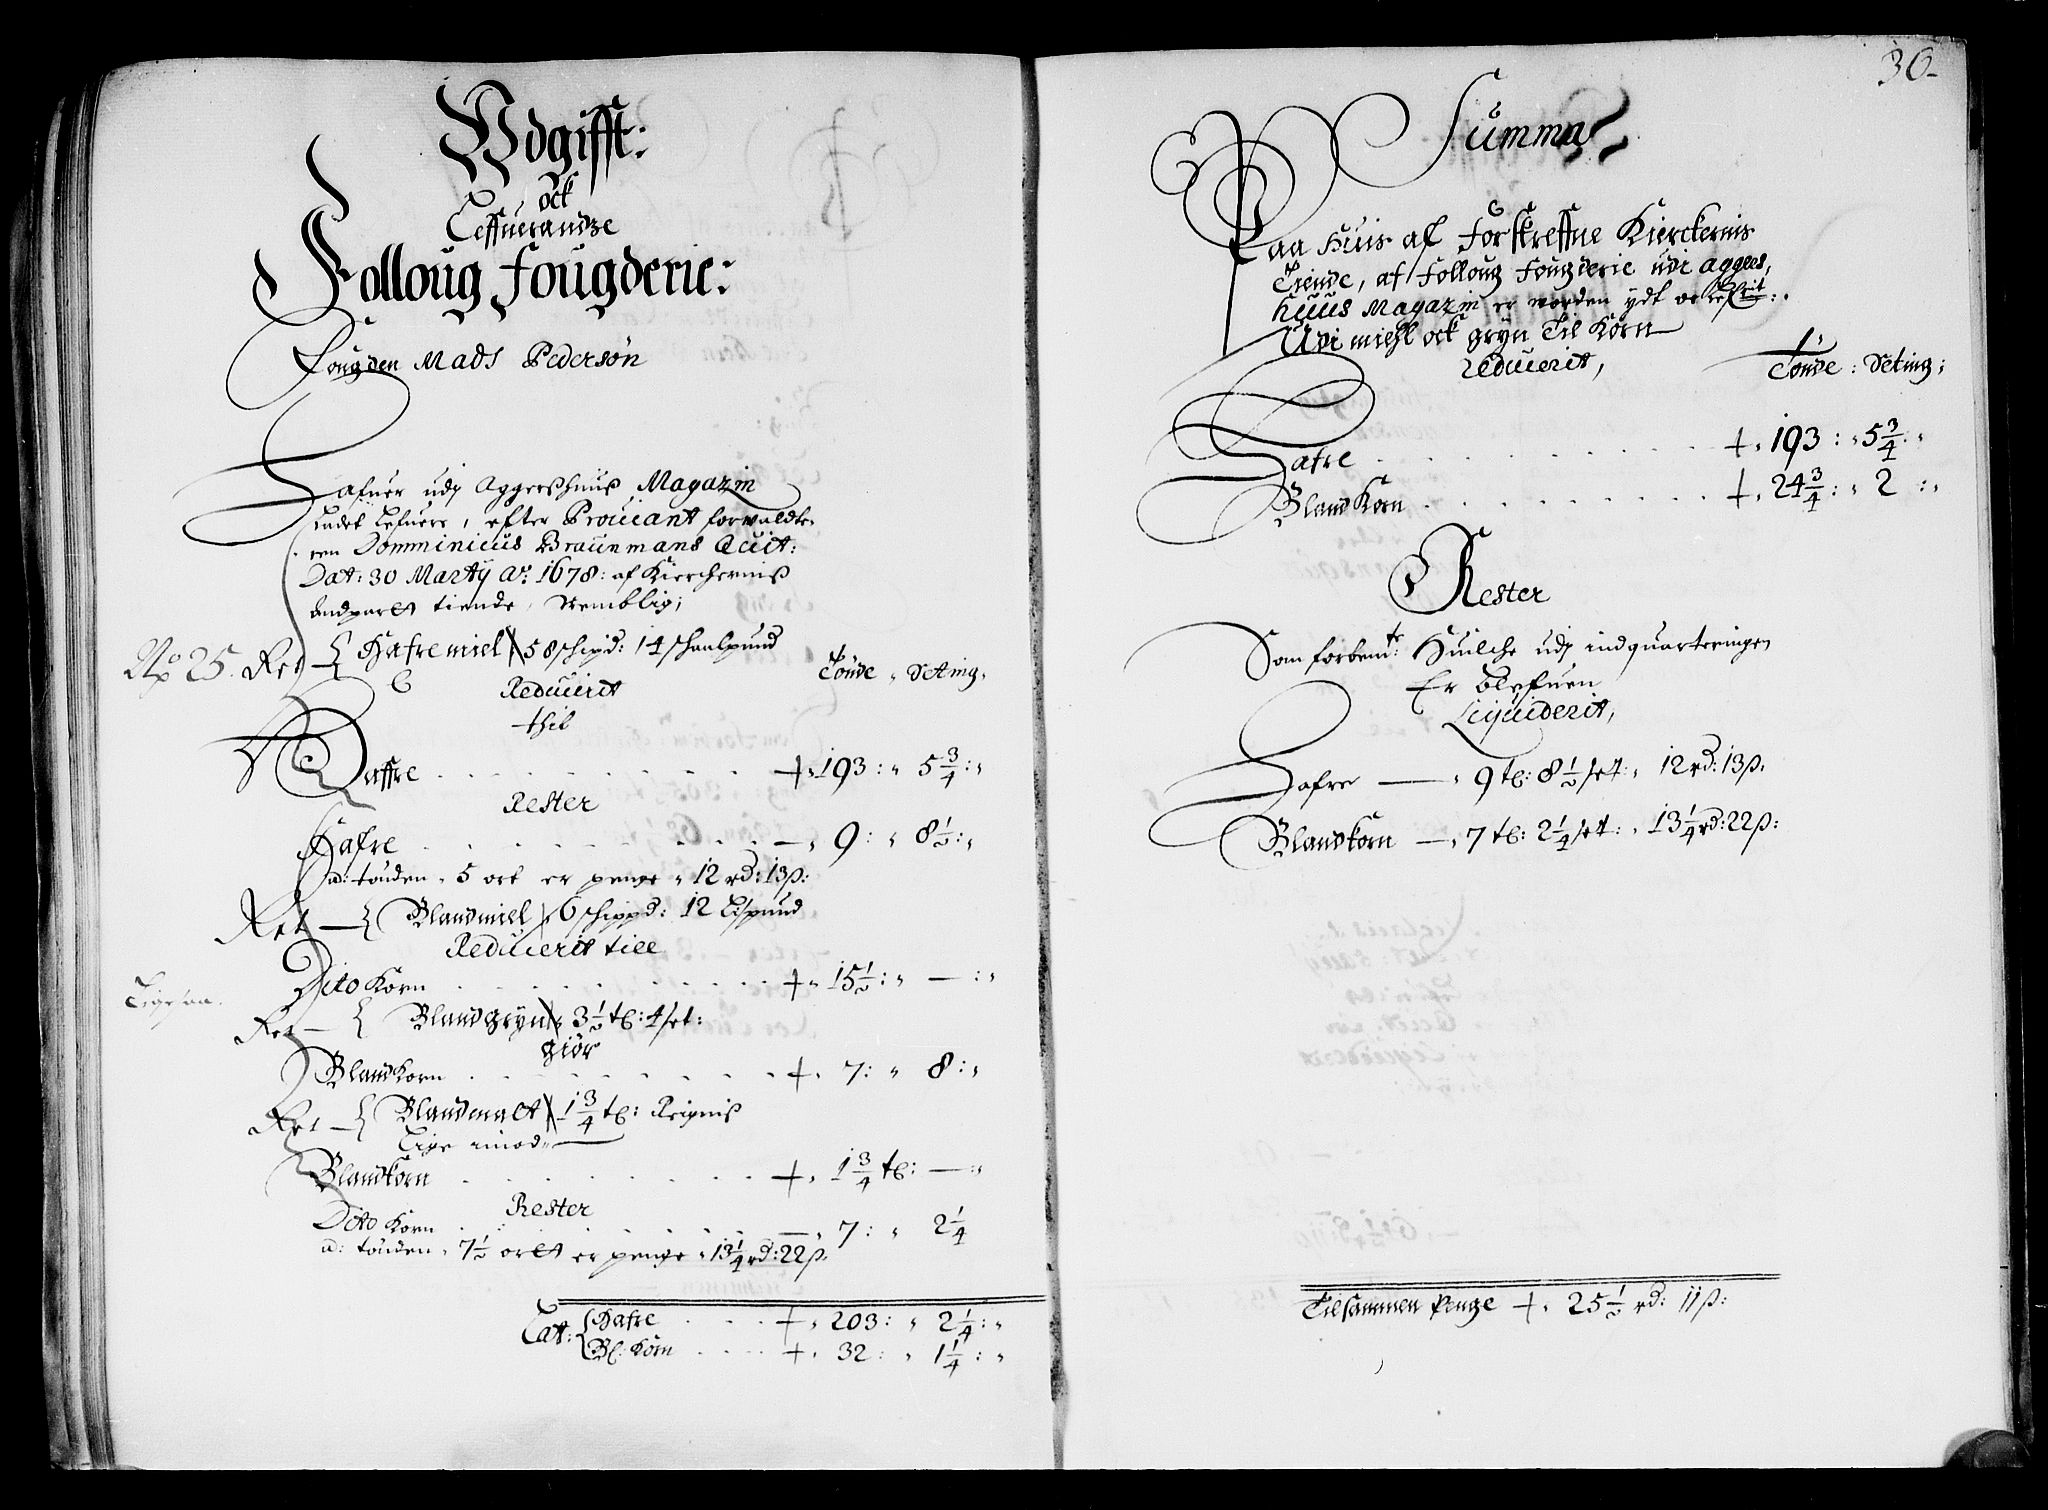 Vdgifft:
ock
Leffuerandze
Folloug Fougderie:
Fougden Mads Pedersøn
Hafuer udj Aggershuus Magazin
ladet Lefuere, efter Prouiant forvaldte-
ren Domminicus Braunmans Quit:
Dat: 30 Martij Ao: 1678: af Kiercherniß
Andpart tiende, Nemblig;
No 25. Ret — { Hafremiel 58 schipd: 14 schaalpund
Reducerit Tønde „ Seting„
thil
Haffre . . . . . + „ 193: „ 5 3/4: „
Rester
Hafre . . . . . — „ 9: „ 8 1/2: „
a: tønden „ 5 ort er penge „ 12 rd: 13 ß:
Ret — { Blandmiel 6 schippd: 12 Lispund
Reducerit till
Dito Korn . . . . . + „ 15 1/2: „ — : „
Ret — { Blandgryn 3 1/2 tl: 4 set:
giør
Blandkorn . . . . . + „ 7: „ 8: „
Ret — { Blandmalt 1 3/4 tl: Reigniß
Lige imod
Blandkorn . . . . . + „ 1 3/4 tl: — : „
Rester
Dito Korn . . . . . — „ 7: „ 2 1/4
a: tønden „ 7 1/2 ort er penge „ 13 1/4 rd: 22 ß:
Lat: { Hafre . . . + „ 203: „ 2 1/4: „
Bl: Korn . . . + „ 32: „ 1 1/4: „
36-
Summa
Paa Huis af Forskreffne Kierckernis
Tiende, af Folloug Fougderie udi agges,
huus Magazin er worden ydt oc
Udi miehl ock gryn Til Korn
reducerit, Tønde: Seting;
Hafre . . . . . + „ 193: „ 5 3/4: „
Bland Korn . . . . . + „ 24 3/4: „ 2: „
Rester
Som forbemte: Huilche udj indquarteringen
Er blefuen
Liquiderit,
Hafre — „ 9 tl: 8 1/2 set: „ 12 rd: 13 ß:
Blandkorn — „ 7 tl: 2 1/4 set: „ 13 1/4 rd: 22 ß:
Tilsammen Penge + „ 25 1/2 rd: 11 ß: